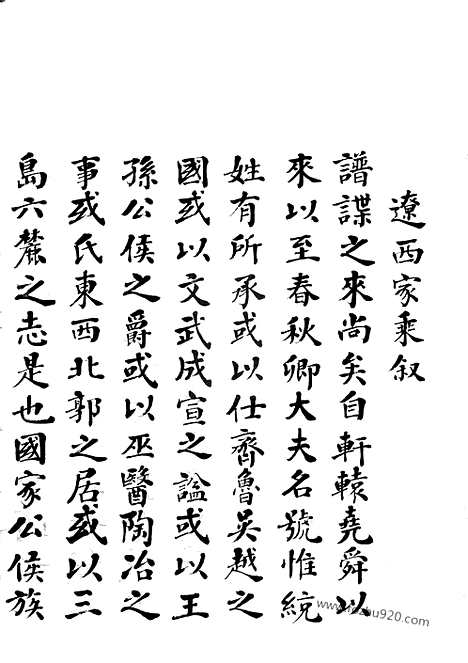 遼西家乘叙
譜諜之來尚矣自軒轅堯舜以
來以至春秋卿大夫名號惟統
姓有所承或以仕齊魯吳越之
國或以文武成宣之謚或以王
孫公侯之爵或以巫醫陶冶之
事或氏東西北郭之居或以三
島六麓之志是也國家公侯族